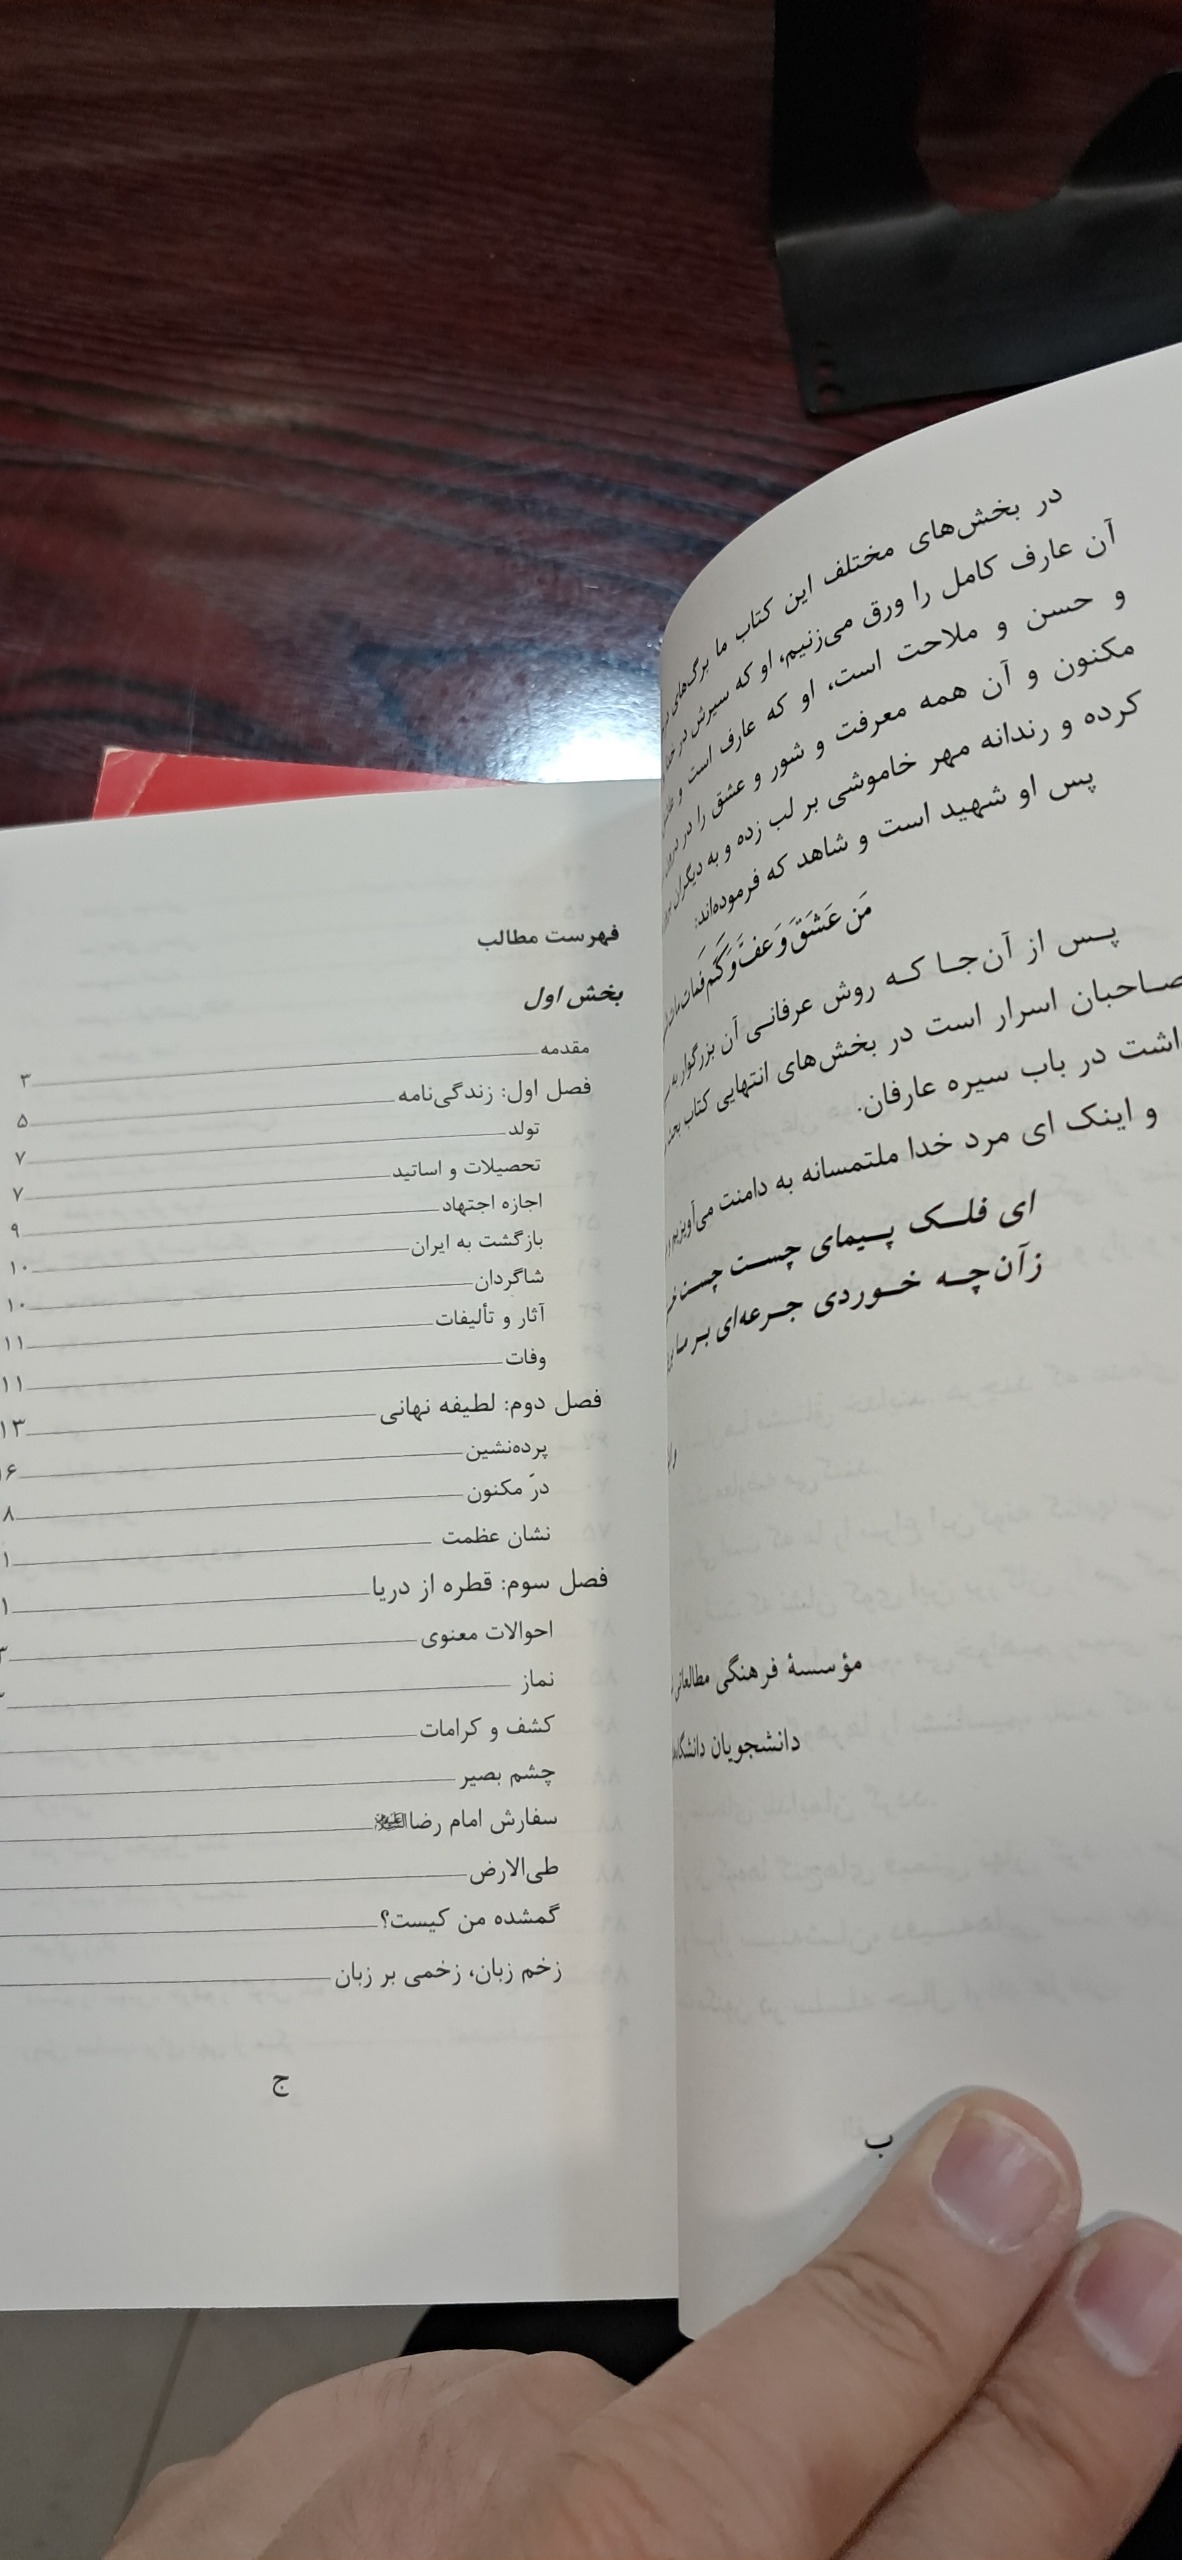 در بخش‌های مختلف این کتاب ما برگ‌های
آن عارف کامل را ورق می‌زنیم، او که سیرش در
و حسن و ملاحت است، او که عارف است و
مکنون و آن همه معرفت و شور و عشق را در
کرده و رندانه مهر خاموشی بر لب زده و به دیگران
پس او شهید است و شاهد که فرموده‌اند:
مَن عَشَقَ وَ عَفَّ وَ
پس از آن‌جا که روش عرفانی آن بزرگوار به
صاحبان اسرار است در بخش‌های انتهایی کتاب
داشت در باب سیره عارفان.
و اینک ای مرد خدا ملتمسانه به دامنت می‌آویزیم و
ای فلک پیمای چست چست
زآن‌چه خوردی جرعه‌ای بر
مؤسسهٔ فرهنگی مطالعاتی
دانشجویان
ب
فهرست مطالب
بخش اول
مقدمه ۳
فصل اول: زندگی‌نامه ۵
تولد ۷
تحصیلات و اساتید ۷
اجازه اجتهاد ۹
بازگشت به ایران ۱۰
شاگردان ۱۰
آثار و تألیفات ۱۱
وفات ۱۱
فصل دوم: لطیفه نهانی ۱۳
پرده‌نشین
درّ مکنون
نشان عظمت
فصل سوم: قطره از دریا
احوالات معنوی
نماز
کشف و کرامات
چشم بصیر
سفارش امام رضا
طی‌الارض
گمشده من کیست؟
زخم زبان، زخمی بر زبان
ج